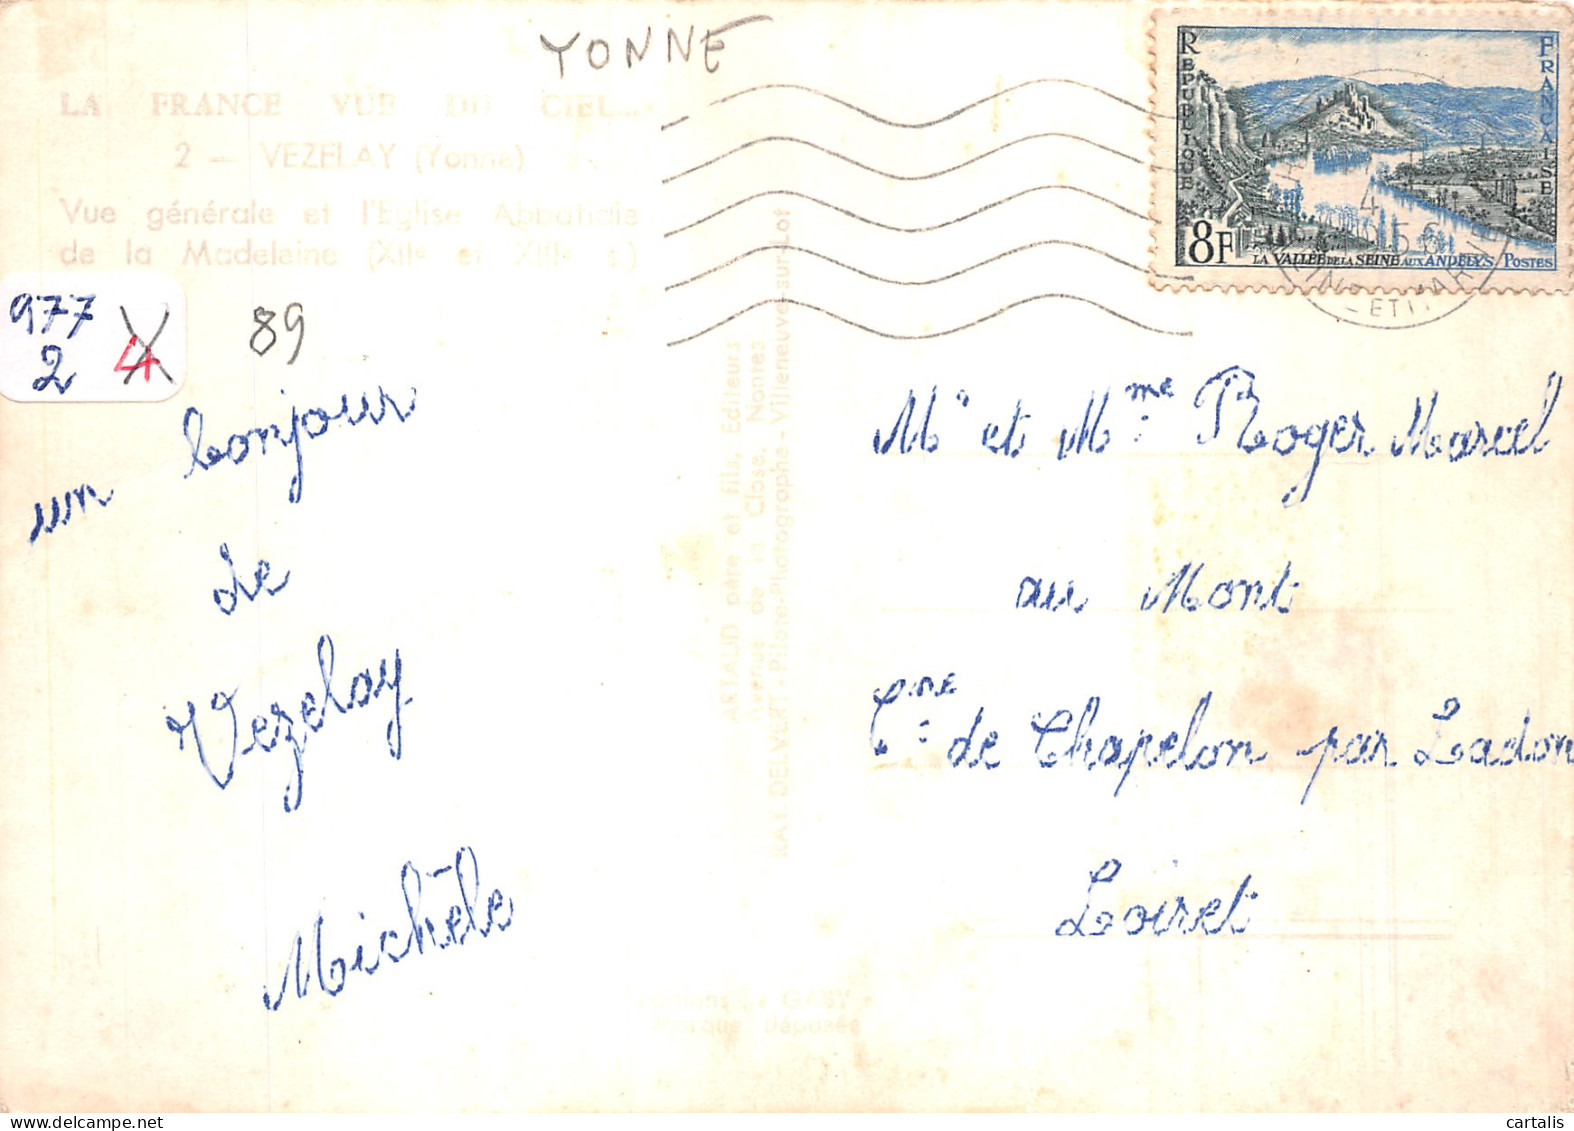 YONNE
LA FRANCE VUE DU CIEL...
2 - VEZELAY (Yonne)
Vue générale et l'Eglise Abbatiale
de la Madeleine (XIIe et XIIIe s.)
977
2
4
89
un bonjour
de
Vezelay
Michèle
ARTAUD père et fils, Editeurs
Avenue de la Close, Nantes
RAY DELVERT - Pilote-Photographe - Villeneuve-sur-Lot
GABY
Marque Déposée
REPUBLIQUE
FRANÇAISE
8F
LA VALLÉE DE LA SEINE AUX ANDELYS
POSTES
4
SEINE-ET-MARNE
Mr et Mme Roger Marcel
au Mont
Cne de Chapelon par Ladon
Loiret
cartalis